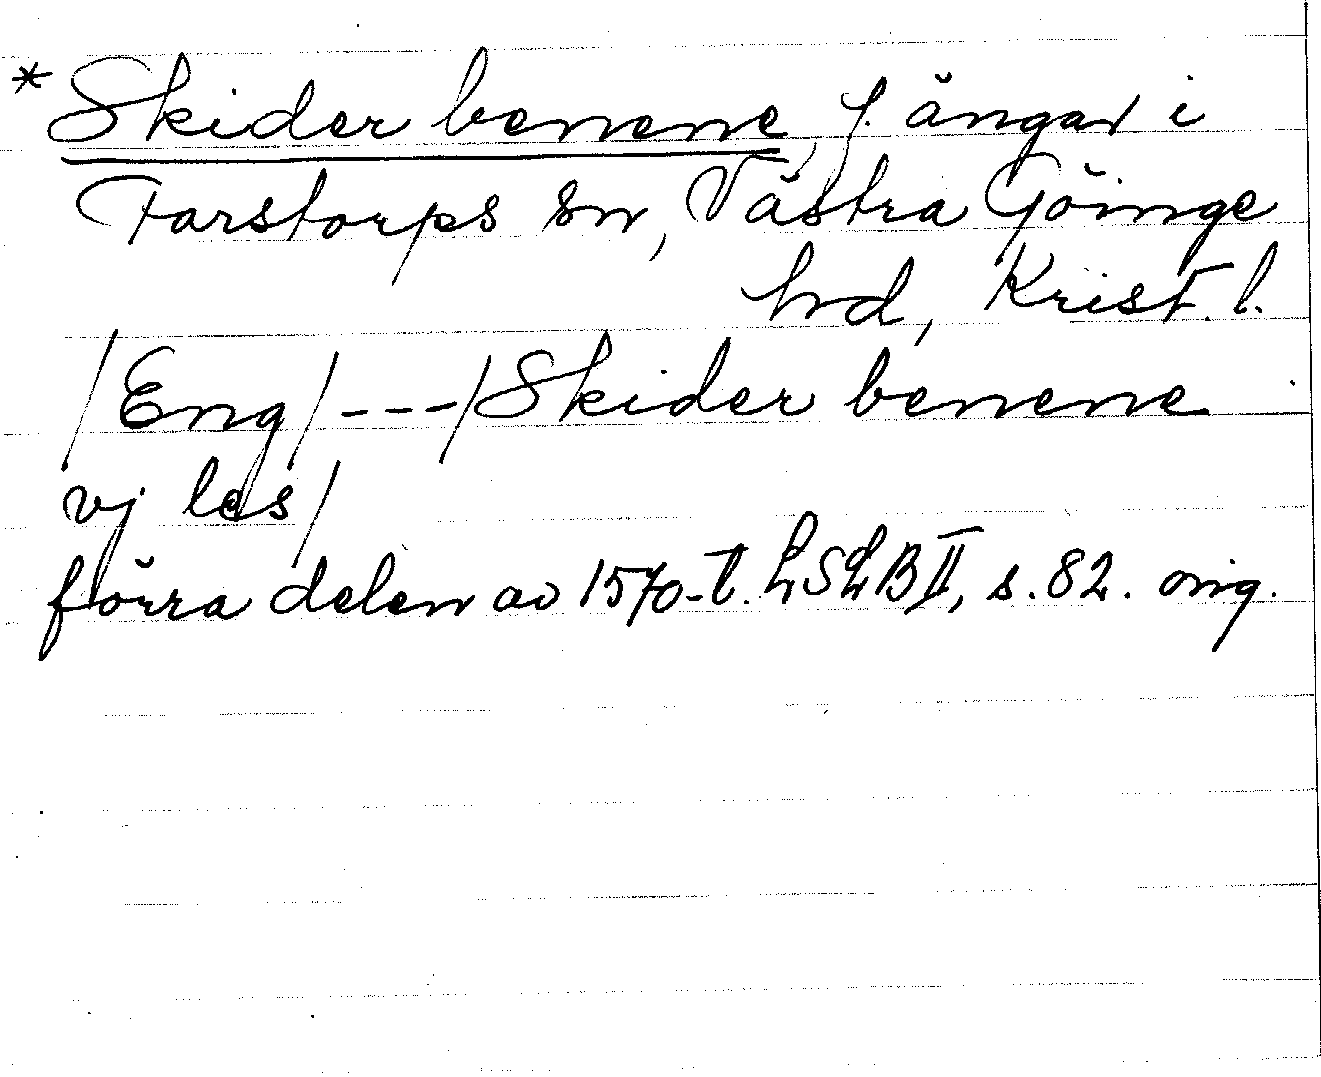 * Skider benene, f. ängar i
Farstorps sn, Västra Göinge
hd, Krist. l.
/Eng/---/Skider benene
vj les/
förra delen av 1570-t. LSLB II, s. 82. orig.